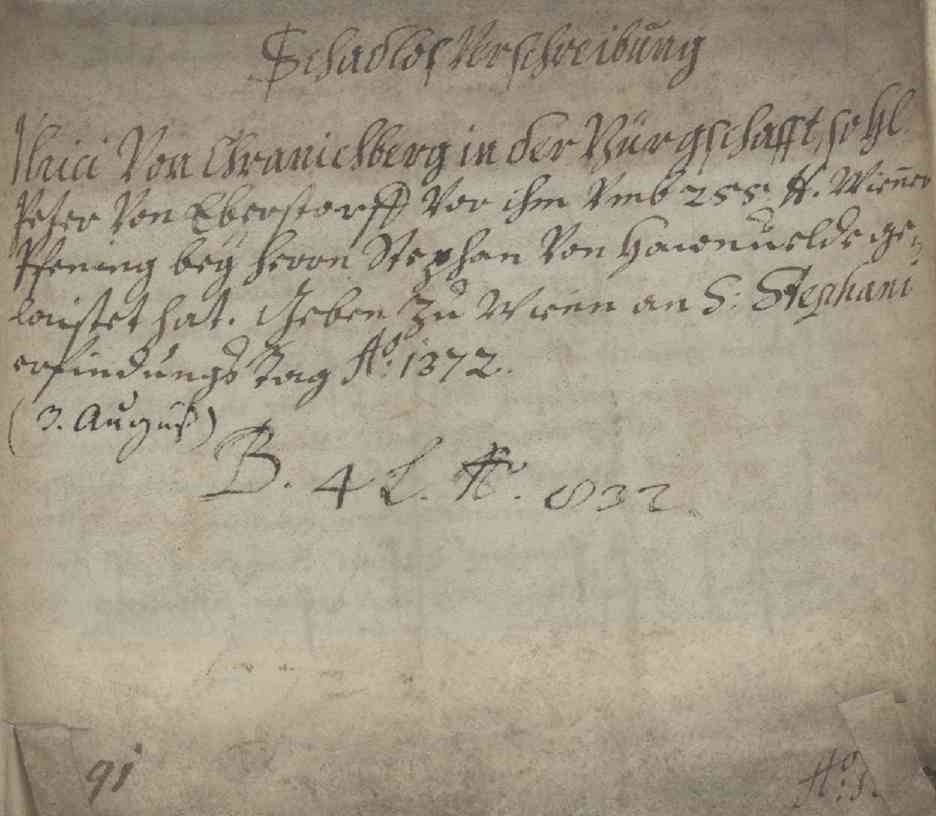 Schadlos Verschreibung
Ulrici Von Chranichberg in der Bürgschafft so Hl
Peter Von Eberstorff Vor ihm Vmb 255 ℔. Wienner
Pfening beÿ herrn Stephan Von Hawnuelde ge,
laistet hat. Geben Zu Wienn an S: Stephani
erfindungs Tag Ao: 1372.
(3. August)
B. 4 L. No. 832
91